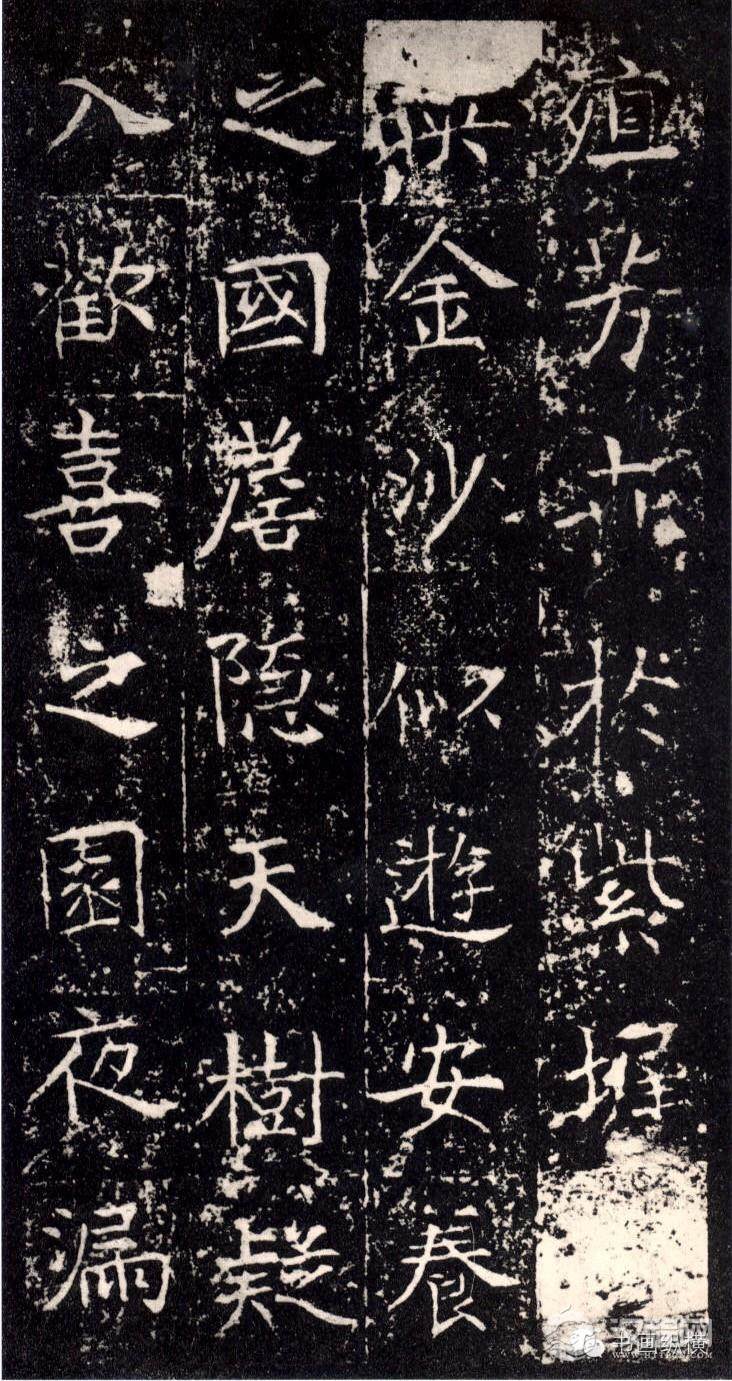 殖芳卉於紫墀
映金沙似遊安養
之國簷隱天樹疑
入歡喜之園夜漏
书画纵横